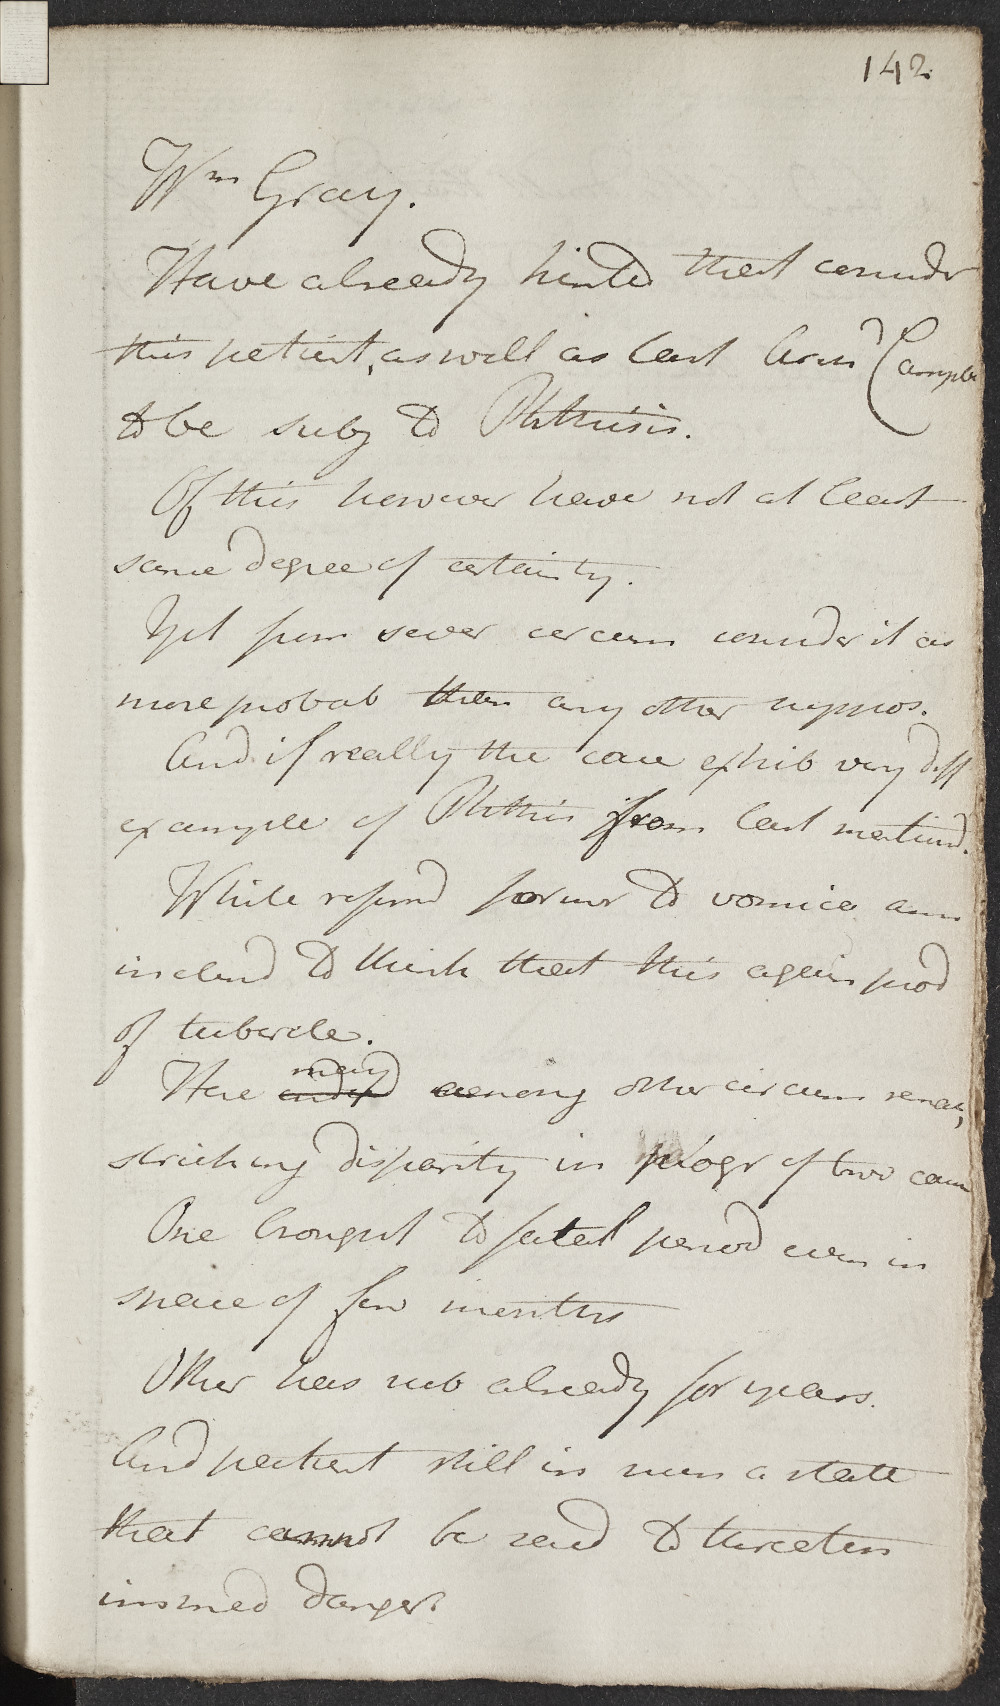 142
Wm Gray.
Have already hinted that consider
this patient, as well as last Arm Campbe
to be subj to Phthisis.
Of this however have not at least
same degree of certainty.
Yet from sever circum consider it as
more probab than any other suppos.
And if really the case exhib very diff
example of Phthisis from last mentiond.
While referrd former to vomica am
inclind to think that this again prod
of tubercle.
Have many among other circum remark,
striking disparity in progr of two cases
One brought to fatal period even in
space of few months
Other has sub already for years.
And patient still in such a state
that cannot be said to threaten
immed danger.